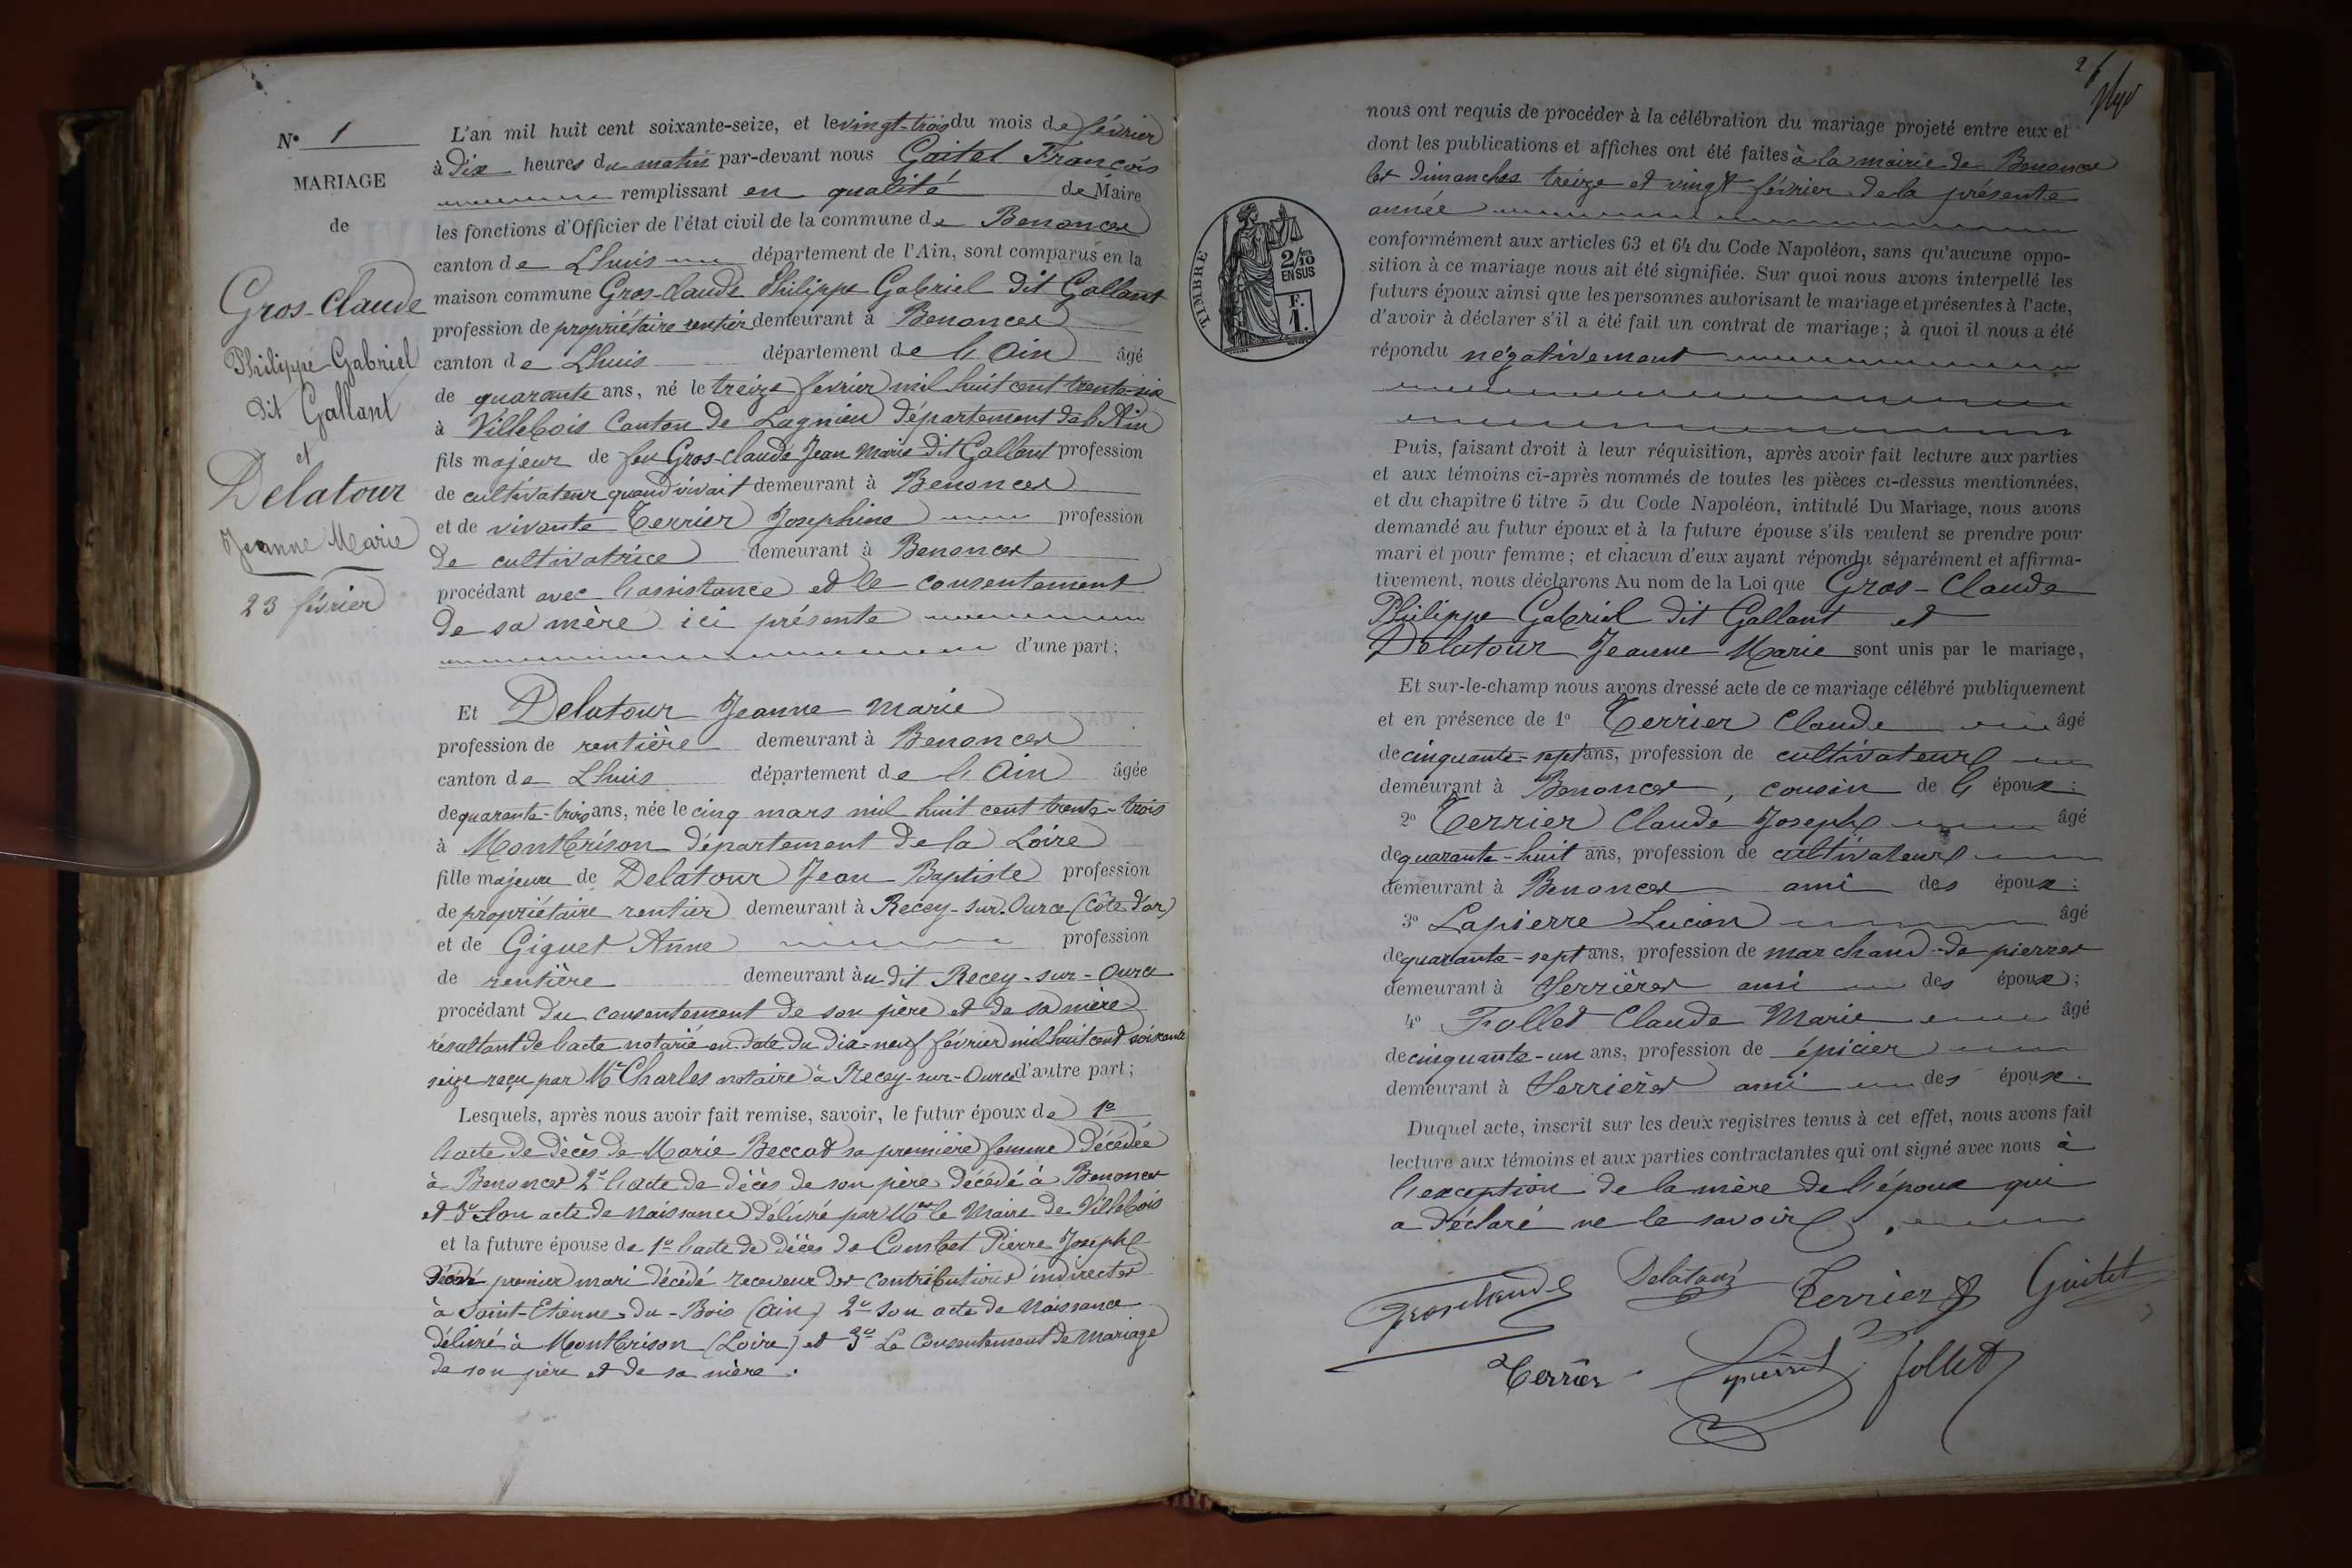 N° 1
MARIAGE
de
Gros-Claude
Philippe Gabriel
dit Gallant
et
Delatour
Jeanne Marie
23 février
L'an mil huit cent soixante-seize, et le vingt-trois du mois de février
à dix heures du matin par-devant nous Goitel François
remplissant en qualité de Maire
les fonctions d'Officier de l'état civil de la commune de Benonces
canton de Lhuis département de l'Ain, sont comparus en la
maison commune Gros-Claude Philippe Gabriel dit Gallant
profession de propriétaire rentier demeurant à Benonces
canton de Lhuis département de l'Ain âgé
de quarante ans, né le treize février mil huit cent trente-six
à Villebois Canton de Lagnieu département de l'Ain
fils majeur de feu Gros-Claude Jean Marie dit Gallant profession
de cultivateur quand vivait demeurant à Benonces
et de vivante Terrier Josephine profession
de cultivatrice demeurant à Benonces
procédant avec l'assistance et le consentement
de sa mère ici présente
d'une part;
Et Delatour Jeanne Marie
profession de rentière demeurant à Benonces
canton de Lhuis département de l'Ain âgée
de quarante-trois ans, née le cinq mars mil huit cent trente-trois
à Montbrison département de la Loire
fille majeure de Delatour Jean Baptiste profession
de propriétaire rentier demeurant à Recey-sur-Ource (Côte d'or)
et de Giguet Anne profession
de rentière demeurant au dit Recey-sur-Ource
procédant du consentement de son père et de sa mère
résultant de l'acte notarié en date du dix-neuf février mil huit cent soixante
seize reçu par Me Charles notaire à Recey-sur-Ource d'autre part;
Lesquels, après nous avoir fait remise, savoir, le futur époux de 1º
l'acte de décès de Marie Beccat sa première femme décédée
à Benonces 2º l'acte de décès de son père décédé à Benonces
et 3º Son acte de naissance délivré par Mr le Maire de Villebois
et la future épouse de 1º l'acte de décès de Combet Pierre Joseph
premier mari décédé receveur des contributions indirectes
à Saint-Etienne-du-Bois (Ain) 2º son acte de Naissance
délivré à Montbrison (Loire) et 3º Le Consentement de Mariage
de son père et de sa mère.
2
nous ont requis de procéder à la célébration du mariage projeté entre eux et
dont les publications et affiches ont été faites à la mairie de Benonces
les dimanches treize et vingt février de la présente
année
conformément aux articles 63 et 64 du Code Napoléon, sans qu'aucune oppo-
sition à ce mariage nous ait été signifiée. Sur quoi nous avons interpellé les
futurs époux ainsi que les personnes autorisant le mariage et présentes à l'acte,
d'avoir à déclarer s'il a été fait un contrat de mariage; à quoi il nous a été
répondu négativement
TIMBRE
2/10
EN SUS
F.
1.
Puis, faisant droit à leur réquisition, après avoir fait lecture aux parties
et aux témoins ci-après nommés de toutes les pièces ci-dessus mentionnées,
et du chapitre 6 titre 5 du Code Napoléon, intitulé Du Mariage, nous avons
demandé au futur époux et à la future épouse s'ils veulent se prendre pour
mari et pour femme; et chacun d'eux ayant répondu séparément et affirma-
tivement, nous déclarons Au nom de la Loi que Gros-Claude
Philippe Gabriel dit Gallant et
Delatour Jeanne Marie sont unis par le mariage,
Et sur-le-champ nous avons dressé acte de ce mariage célébré publiquement
et en présence de 1º Terrier Claude âgé
de cinquante-sept ans, profession de cultivateur
demeurant à Benonces, cousin de l'époux;
2º Terrier Claude Joseph âgé
de quarante-huit ans, profession de cultivateur
demeurant à Benonces ami des époux;
3º Lapierre Lucien âgé
de quarante-sept ans, profession de marchand de pierres
demeurant à Serrières ami des époux;
4º Follet Claude Marie âgé
de cinquante-un ans, profession de épicier
demeurant à Serrières ami des époux.
Duquel acte, inscrit sur les deux registres tenus à cet effet, nous avons fait
lecture aux témoins et aux parties contractantes qui ont signé avec nous à
l'exception de la mère de l'époux qui
a déclaré ne le savoir.
Grosclaude Delatour Terrier J Guitet
Terrier Lapierre follet